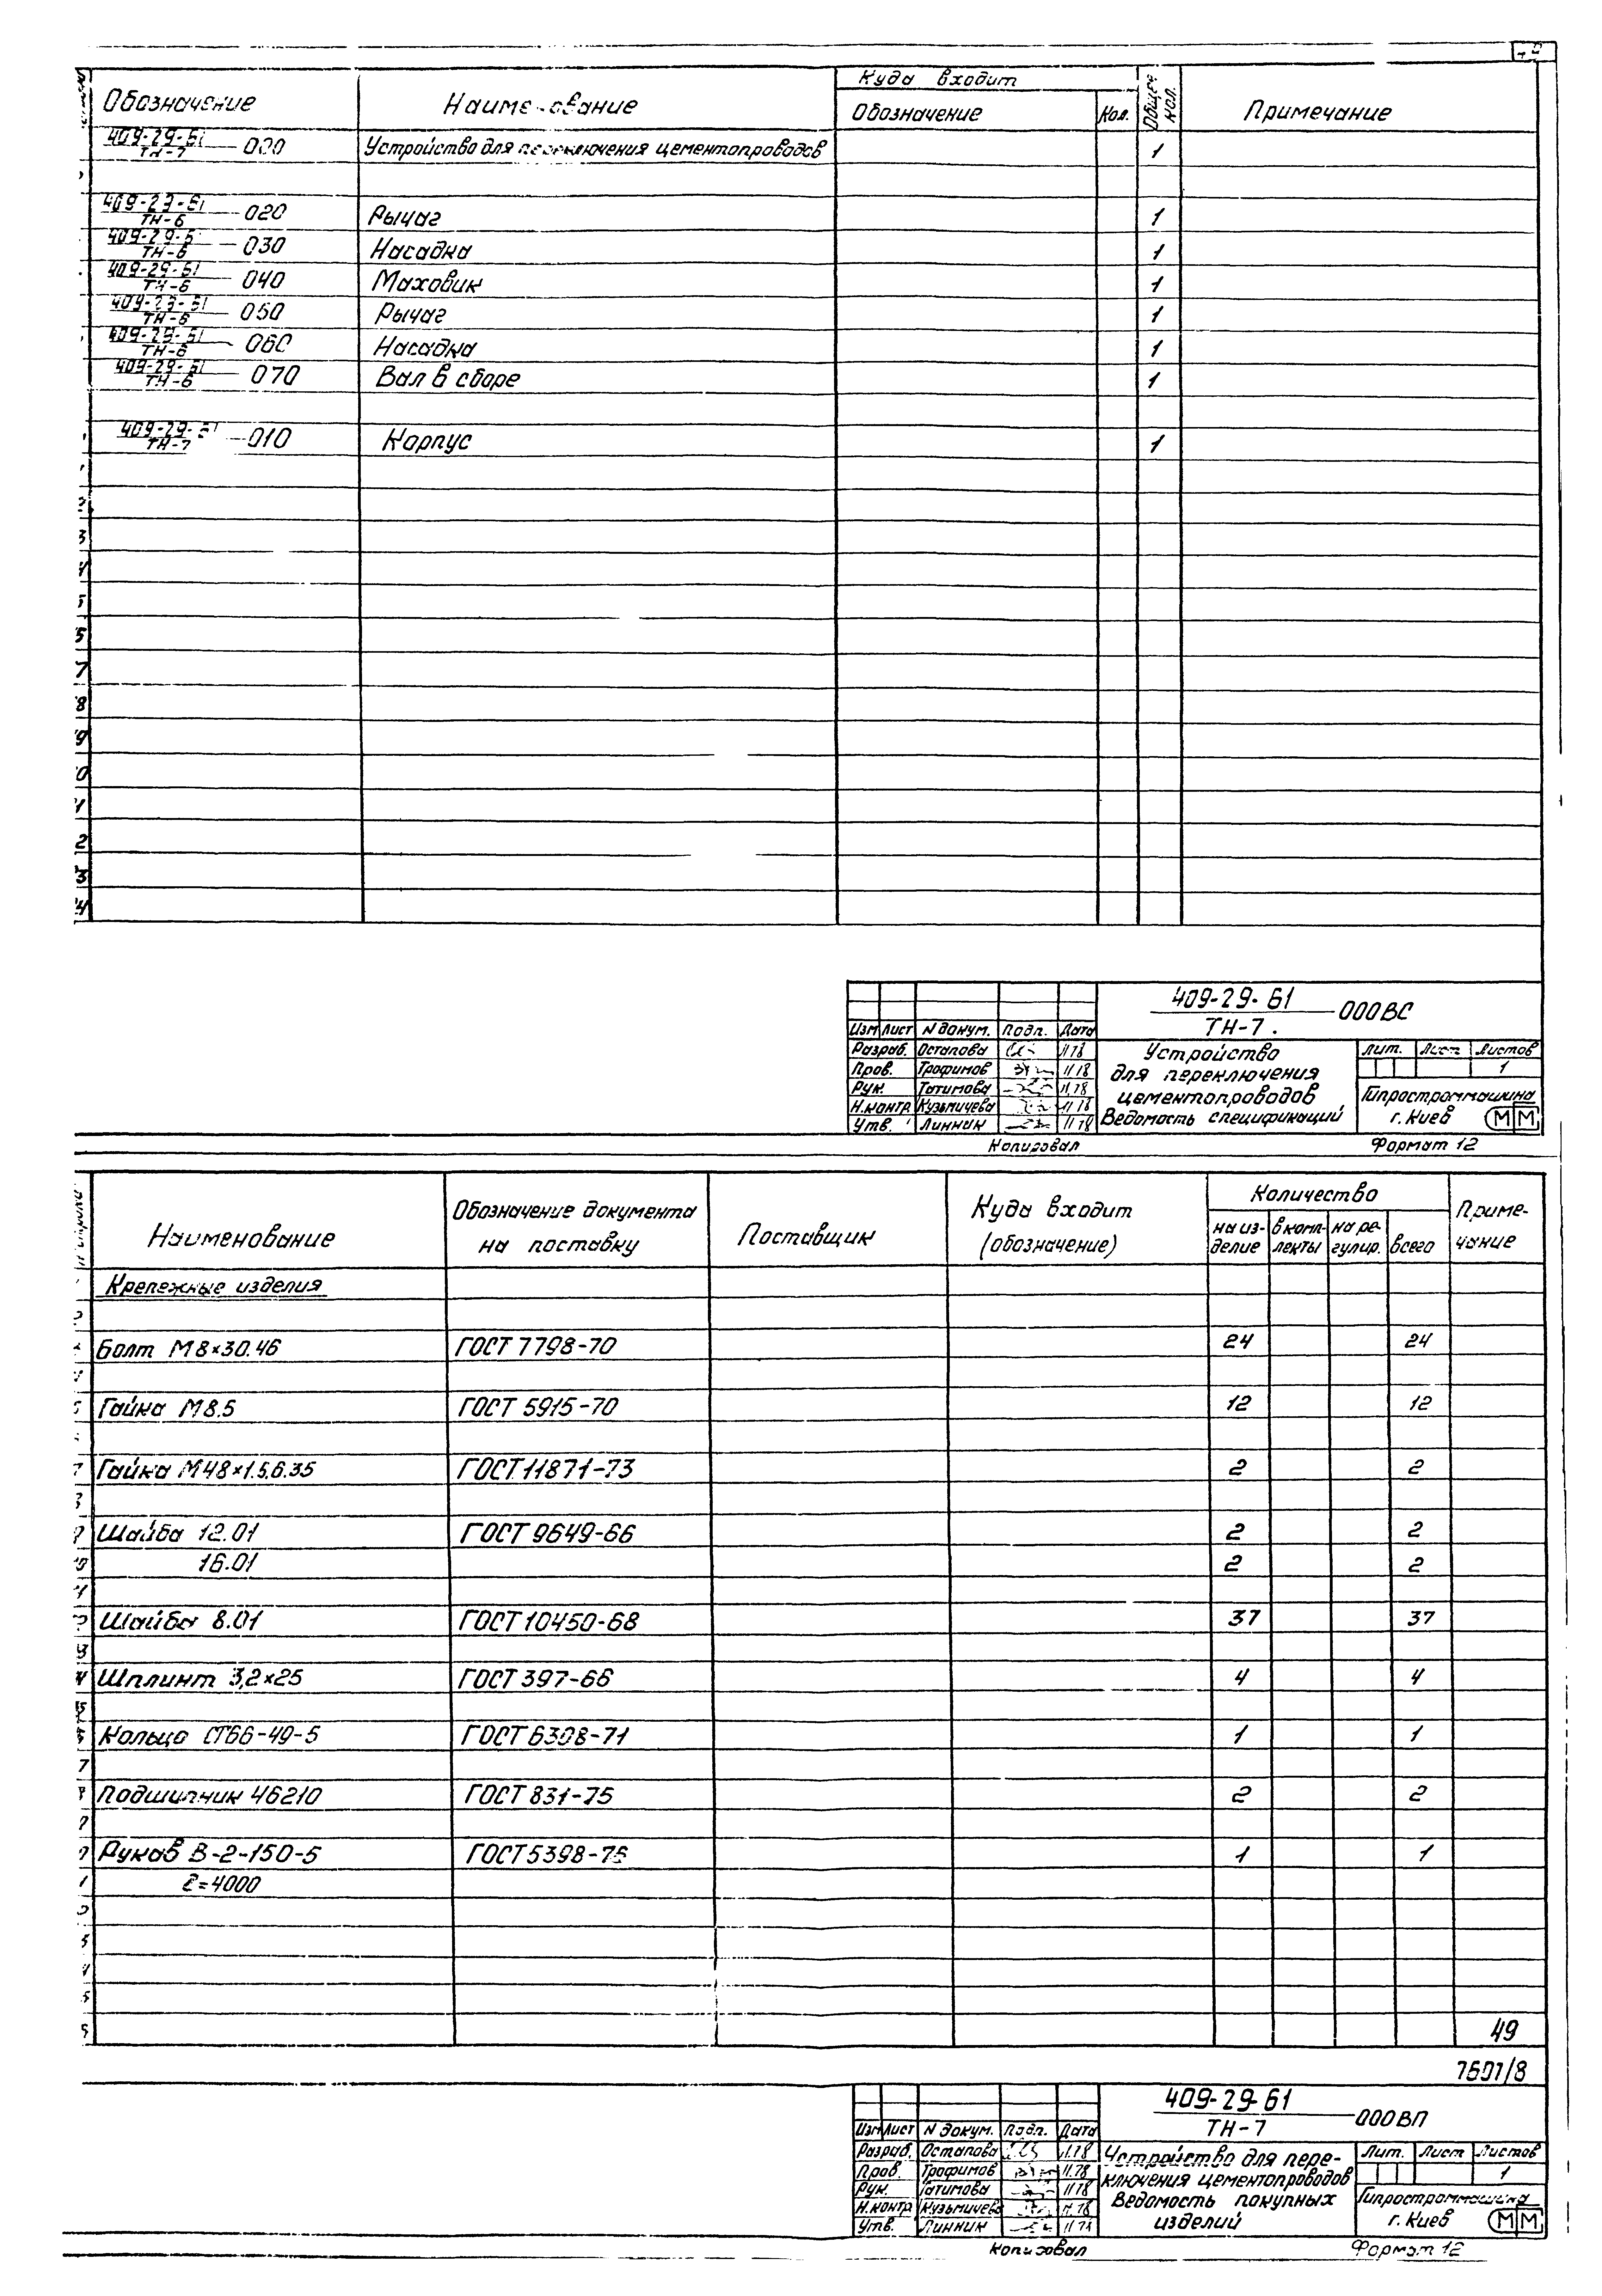 Обозначение Наименование Куда входит Общее кол. Примечание
Обозначение Кол.
409-29-61
ТН-7 000 Устройство для переключения цементопроводов 1
409-29-61
ТН-6 020 Рычаг 1
409-29-6
ТН-6 030 Насадка 1
409-29-61
ТН-6 040 Маховик 1
409-29-61
ТН-6 050 Рычаг 1
409-29-61
ТН-6 060 Насадка 1
409-29-61
ТН-6 070 Вал в сборе 1
409-29-61
ТН-7 010 Корпус 1
409-29-61
ТН-7. 000ВС
Изм Лист N докум. Подп. Дата
Разраб. Остапова 11.78
Пров. Трофимов 11.78
Рук. Татимова 11.78
Н.контр. Кузьмичева 11.78
Утв. Линник 11.78
Устройство
для переключения
цементопроводов
Ведомость спецификаций
Лит. Лист Листов
1
Гипростроммашина
г. Киев ММ
Копировал Формат 12
Наименование Обозначение документа на поставку Поставщик Куда входит (обозначение) Количество Примечание
на изделие в комплекты на регулир. всего
Крепежные изделия
Болт М8×30.46 ГОСТ 7798-70 24 24
Гайка М8.5 ГОСТ 5915-70 12 12
Гайка М48×1.5.6.35 ГОСТ 11871-73 2 2
Шайба 12.01 ГОСТ 9649-66 2 2
16.01 2 2
Шайба 8.01 ГОСТ 10450-68 37 37
Шплинт 3,2×25 ГОСТ 397-66 4 4
Кольцо СТ66-49-5 ГОСТ 6308-71 1 1
Подшипник 46210 ГОСТ 831-75 2 2
Рукав В-2-150-5 ГОСТ 5398-76 1 1
ℓ=4000
49
7601/8
409-29-61
ТН-7 000ВП
Изм Лист N докум. Подп. Дата
Разраб. Остапова 11.78
Пров. Трофимов 11.78
Рук. Татимова 11.78
Н.контр Кузьмичева 11.78
Утв. Линник 11.78
Устройство для пере-
ключения цементопроводов
Ведомость покупных
изделий
Лит. Лист Листов
1
Гипростроммашина
г. Киев ММ
Копировал Формат 12